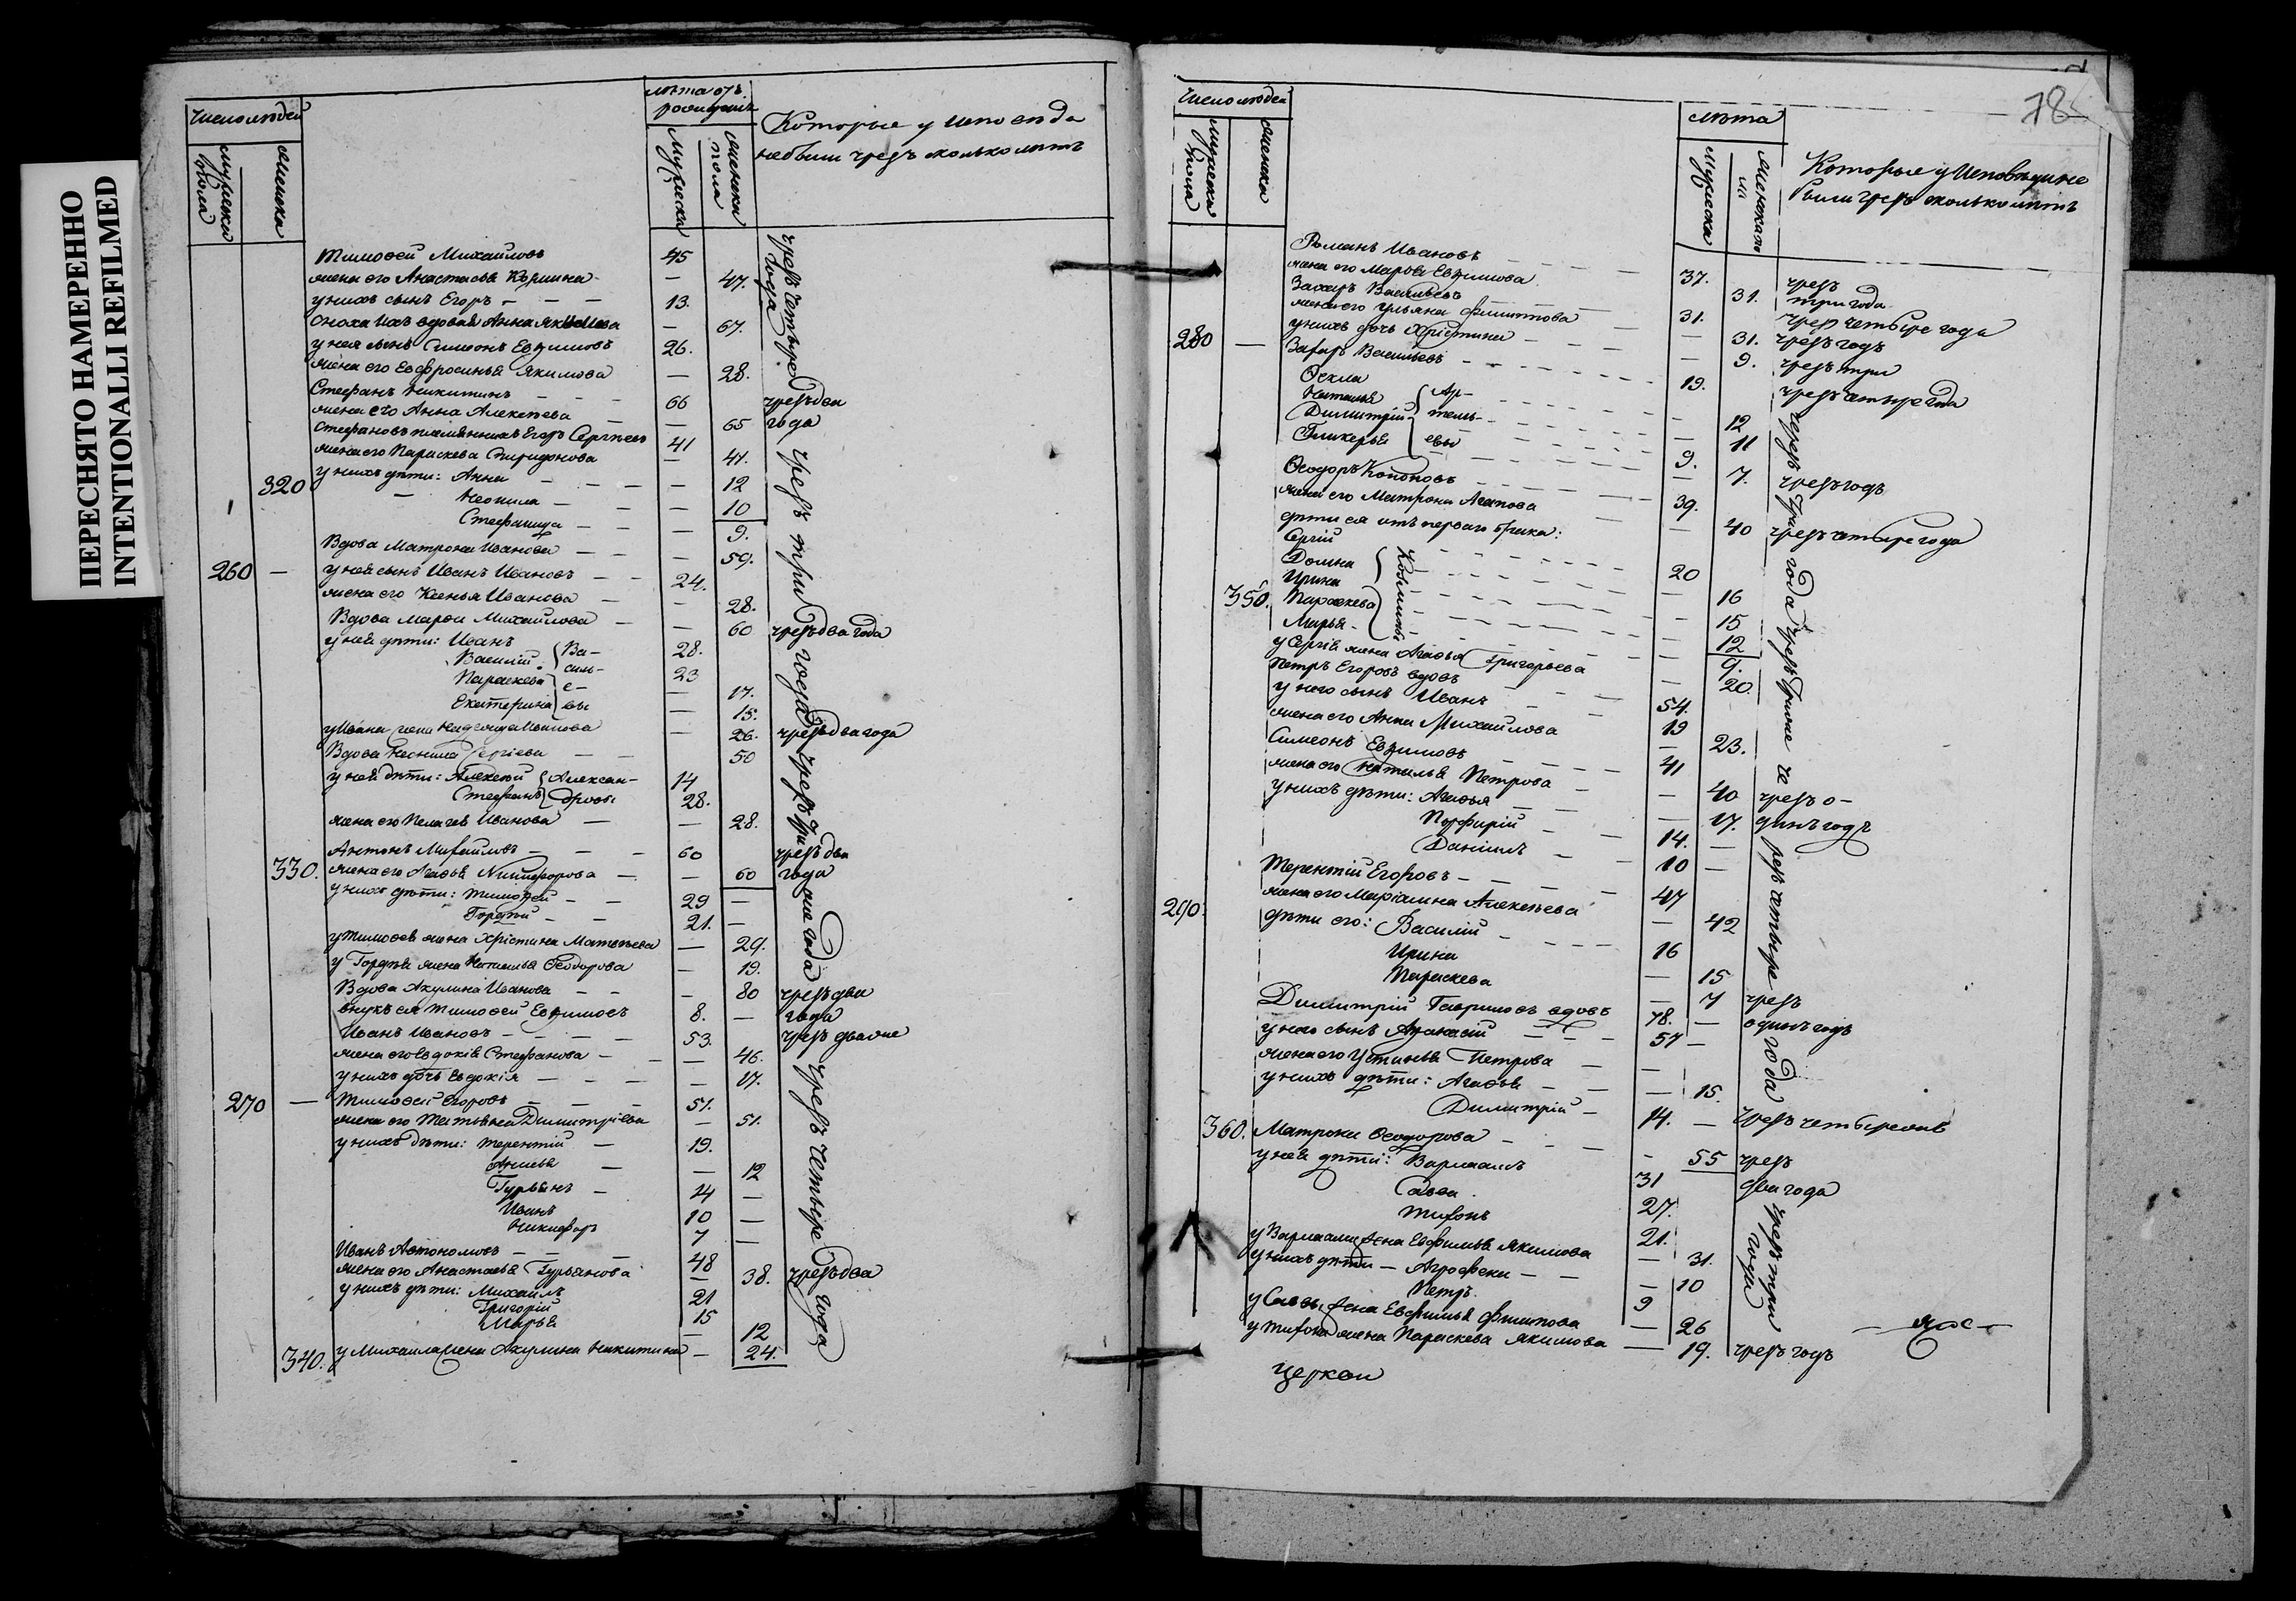 ПЕРЕСНЯТО НАМЕРЕННО
INTENTIONALLI REFILMED
Число людей
мужеска пола
женска
лѣта отъ рожденія
мужеска
женска пола
Которые у исповѣди
небыли чрезъ сколько лѣтъ
Тимоѳей Михайловъ 45
жена его Анастасья 47.
у нихъ сынъ Егоръ 13.
сноха ихъ вдовая Анна 67.
у нея сынъ Симеонъ Евфимовъ 26.
жена его Евфросинья Якимова 28.
чрезъ четыре года
Стефанъ Никитинъ 66 чрезъ два
жена его Анна Алексѣева 65 года
Стефановъ племянникъ Егоръ Сергѣевъ 41
жена его Параскева Спиридонова 41.
320 у нихъ дѣти: Анна 12
Неонила 10
Стефанида 9.
Вдова Матрона Иванова 59.
260 у ней сынъ Иванъ Ивановъ 24.
жена его Ксенья Иванова 28.
чрезъ три года
Вдова Марѳа Михайлова 60 чрезъ два года
у ней дѣти: Иванъ 28.
Василій 23
Параскева 17.
Екатерина 15.
Васильевы
у Ивана жена Надежда Иванова 26. чрезъ два года
Вдова Неонила Сергіева 50
у ней дѣти: Алексѣй 14
Стефанъ 28.
Александровы
жена его Пелагея Иванова 28.
Антонъ Михайловъ 60 чрезъ два
330. жена его Агаѳья Никифорова 60 года
у нихъ дѣти: Тимоѳей 29
Гордѣй 21.
у Тимоѳея жена Христина Матвѣева 29.
у Гордѣя жена Наталья Ѳеодорова 19.
Вдова Акулина Иванова 80 чрезъ два
внукъ ея Тимоѳей Евфимовъ 8. года
Иванъ Ивановъ 53. чрезъ два же
жена его Евдокія Стефанова 46.
у нихъ дочь Евдокія 17.
270 Тимоѳей Егоровъ 51.
жена его Татьяна Димитріева 51.
у нихъ дѣти: Терентій 19.
Анисья 12
Гурьянъ 14
Иванъ 10
Никифоръ 7
чрезъ четыре года
Иванъ Автономовъ 48
жена его Анастасья Гурьянова 38. чрезъ два
у нихъ дѣти: Михаилъ 21
Григорій 15
Марья 12
340. у Михаила жена Акулина Никитина 24.
78
Число людей
мужеска пола
женска
лѣта
мужеска
женска
Которые у Исповѣди не
были чрезъ сколько лѣтъ
Романъ Ивановъ 37. чрезъ
жена его Марѳа Евфимова 31. три года
Захаръ Васильевъ 31. чрез четыре года
жена его Ульяна Филиппова 31. чрезъ годъ
у нихъ дочь Христина 9. чрезъ три
280 Захаръ Васильевъ 19. чрезъ четыре года
Ѳекла 12
Наталья 11
Димитрій 9.
Гликерья 7. чрезъ годъ
Артемьевы
Ѳеодоръ Кононовъ 39.
жена его Матрона Агапова 40 чрезъ четыре года
дѣти ея отъ перваго брака:
Сергій 20
Домна 16
Ирина 15
350. Параскева 12
Марья 9.
Козмины
у Сергія жена Агаѳья Григорьева 20.
Петръ Егоровъ вдовъ 54.
у него сынъ Иванъ 19
жена его Анна Михайлова 23.
Симеонъ Евфимовъ 41
жена его Наталья Петрова 40 чрезъ о-
у нихъ дѣти: Агаѳья 17. динъ годъ
Порфирій 14.
Даніилъ 10
Терентій Егоровъ 47
290. жена его Маріамна Алексѣева 42
дѣти его: Василій 16
Ирина 15
Параскева 7
Димитрій Гавриловъ вдовъ 78. чрезъ одинъ годъ
у него сынъ Аѳанасій 57
жена его Устинья Петрова
у нихъ дѣти: Агаѳья 15.
Димитрій 14. чрезъ четыре
360. Матрона Ѳеодорова 55 чрезъ
у ней дѣти: Варлаамъ 31 два года
Савва 27.
Тихонъ 21.
у Варлаама жена Евфимья Якимова 31.
у нихъ дѣти Агрофена 10
Петръ 9
у Саввы жена Евфимья Филипова 26
чрезъ три года
у Тихона жена Параскева Якимова 19. чрезъ годъ
церкви